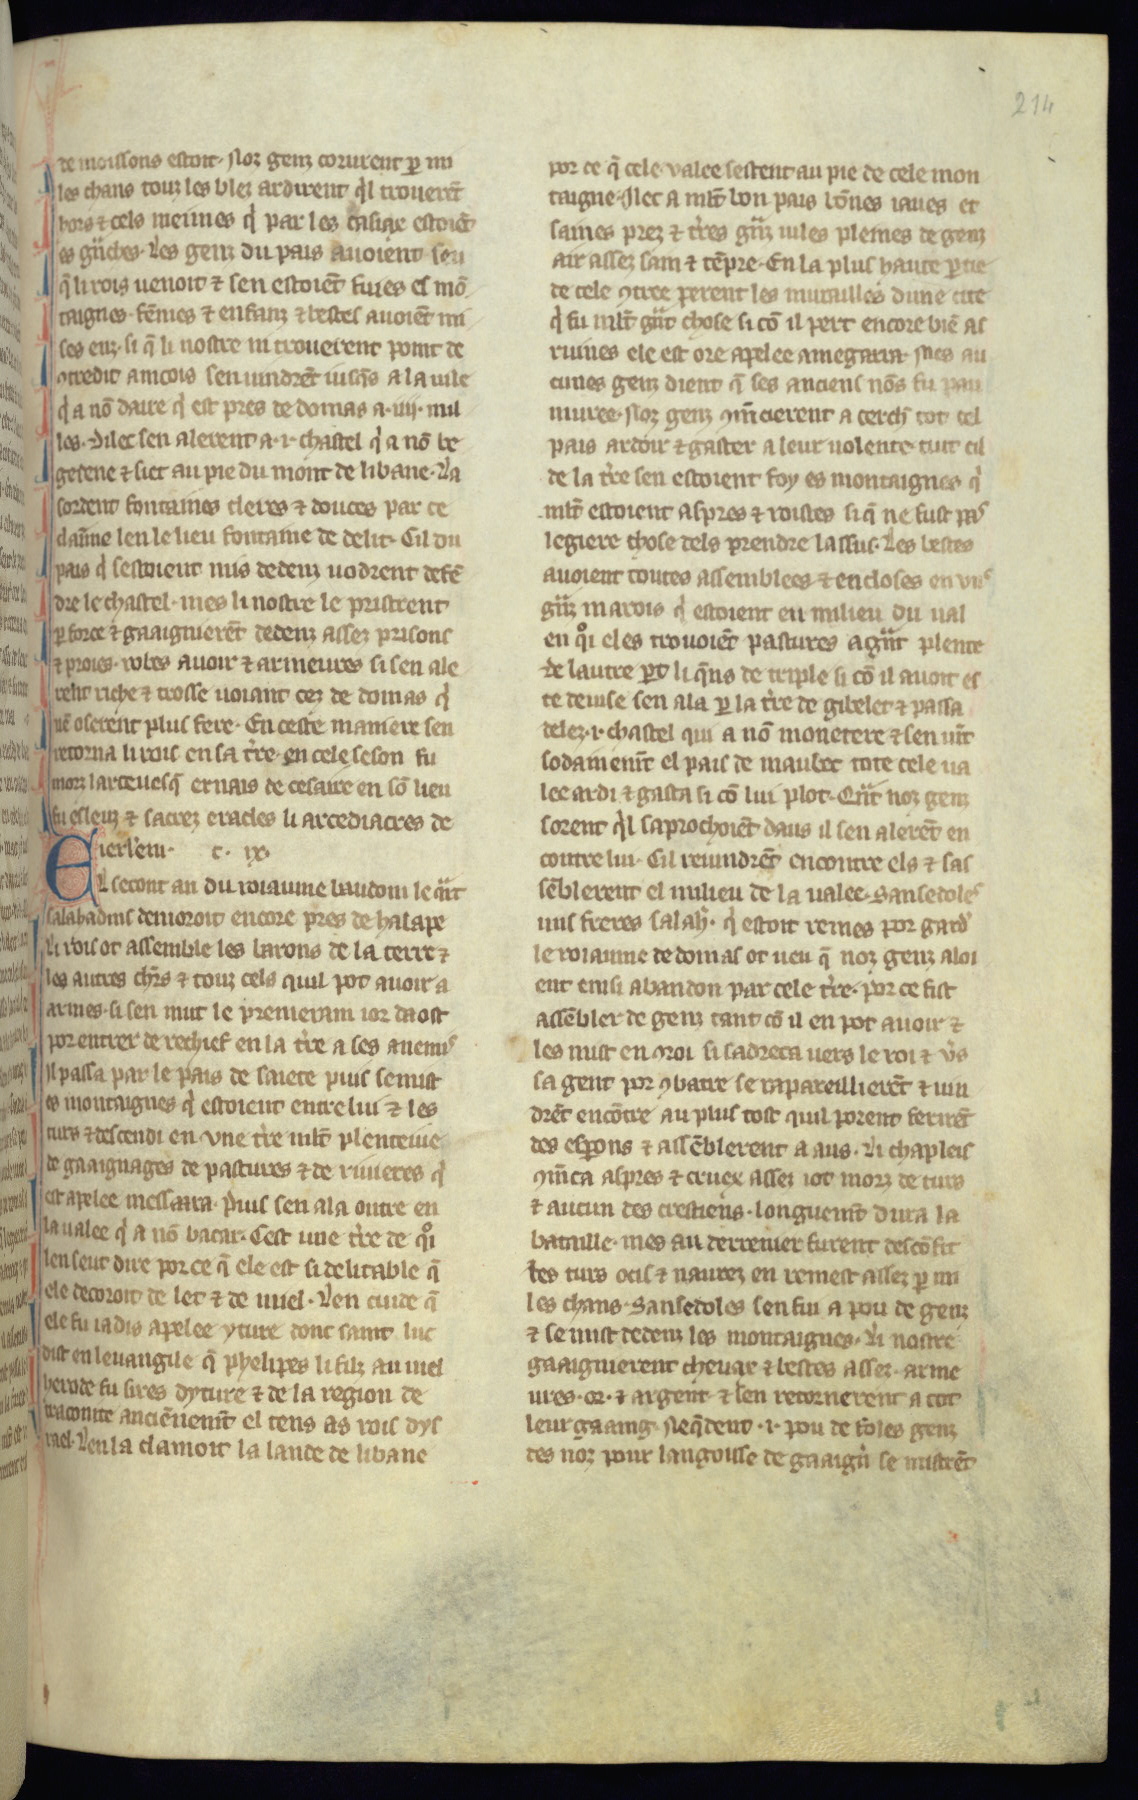 214
de moissons estoit. Noz genz corurent p̲ mi
les chans touz les blez ardirent q̍l trouerẽt
hors ⁊ cels meimes q̍ par les casiax estoiẽt
es gũches. Les genz du pais auoient seu
q̃ li rois uenoit ⁊ sen estoiẽt fuies es mõ
taignes. fẽmes ⁊ enfanz ⁊ bestes auoiẽt mi
ses enz. si q̃ li nostre ni trouerent point de
ꝯtredit ainçois sen uindrẽt iusq̃s a la uile
q̍ a nõ daire q̍ est pres de domas a .iiij. mil
les. Dilec sen alerent a .i. chastel q̍ a nõ be
gedene ⁊ siet au pie du mont de libane. La
sordent fontaines cleres ⁊ douces par ce
claĩme len le lieu fontaine de delit. Cil du
pais q̍ sestoient mis dedenz uodrent defẽ
dre le chastel. mes li nostre le pristrent
p̲ force ⁊ gaaignierẽt dedenz assez prisons
⁊ proies. robes auoir ⁊ armeures si sen ale
rent riche ⁊ trosse uoiant cez de domas q̍
nẽ oserent plus fere. En ceste maniere sen
retorna li rois en sa tr̃e. en cele seson fu
morz larceuesq̃ ernais de cesaire en sõ lieu
fu esleuz ⁊ sacrez eracles li arcediacres de
ierl'em. c. ix.
El secont an du roiaume baudoin le q̍rt
salahadins demoroit encore pres de halape
Li rois ot assemble les barons de la terre ⁊
les autres chr̃s ⁊ touz cels quil pot auoir a
armes. si sen mut le premerain ior daost
por entrer de rechief en la tr̃e a ses anemis
Il passa par le pais de saiete puis se mist
es montaignes q̍ estoient entre lui ⁊ les
turs ⁊ descendi en vne tr̃e ml̃t plenteiue
de gaaignages de pastures ⁊ de riuieres q̍
est apelee messaara. Puis sen ala outre en
la ualee q̍ a nõ bacar. Cest une tr̃e de q̊i
len seut dire por ce q̃ ele est si delitable q̃
ele decoroit de let ⁊ de miel. Len cuide q̃
ele fu iadis apelee yture dont saint luc
dist en leuangile q̃ phelipes li filz au uiel
herode fu sires dyture ⁊ de la region de
traconite anciẽnemt̃ el tens as rois dys
rael. Len la clamoit la lande de libane
por ce q̃ cele valee sestent au pie de cele mon
taigne. Ilec a ml̃t bon pais bõnes iaues et
saines prez ⁊ tr̃es gr̃z uiles pleines de genz
air assez sain ⁊ tẽpre. En la plus haute p̲tie
de cele ꝯtree perent les murailles dune cite
q̍ fu ml̃t gr̃t chose si cõ il pert encore biẽ as
ruines ele est ore apelee amegarra. mes au
cunes genz dient q̃ ses anciens nõs fu pau
miree. Noz genz ꝯmẽcierent a cerch̃ tot cel
pais ardoir ⁊ gaster a leur uolente. tuit cil
de la tr̃e sen estoient foy es montaignes q̍
ml̃t estoient aspres ⁊ roistes si q̃ ne fust pas
legiere chose dels prendre lassus. Les bestes
auoient toutes assemblees ⁊ encloses en uns
gr̃z marois q̍ estoient en milieu du ual
en q̊i eles trouoiẽt pastures a gr̃t plente
De lautre p̲t li q̃ns de triple si cõ il auoit es
te deuise sen ala p̲ la tr̃e de gibelet ⁊ passa
delez .i. chastel qui a nõ monetere ⁊ sen uĩt
sodainemt̃ el pais de maubec tote cele ua
lee ardi ⁊ gasta si cõ lui plot. Qñt noz genz
sorent q̍l saprochoiẽt daus il sen alerẽt en
contre lui. Cil reuindrẽt encontre els ⁊ sas
sẽblerent el milieu de la ualee. Sansedoles
uns freres salah̃. q̍ estoit remes por gard̃
le roiaume de domas ot ueu q̃ noz genz aloi
ent einsi abandon par cele tr̃e. por ce fist
assẽbler de genz tant cõ il en pot auoir ⁊
les mist en ꝯroi si sadreca uers le roi ⁊ ũs
sa gent por ꝯbatre se rapareillierẽt ⁊ uin
drẽt encõtre au plus tost quil porent ferirẽt
des esp̲ons ⁊ assẽblerent a aus. Li chapleis
ꝯmẽca aspres ⁊ cruex assez iot morz de turs
⁊ aucun des crestiens. longuemt̃ dura la
bataille. mes au derrenier furent descõfit
les turs ocis ⁊ naurez en remest assez p̲ mi
les chans. Sansedoles sen fui a pou de genz
⁊ se mist dedenz les montaignes. Li nostre
gaaignierent cheuax ⁊ bestes assez. arme
ures. or. ⁊ argent ⁊ sen retornerent a tot
leur gaaing. Neq̃dent .i. pou de foles genz
des noz pour langoisse de gaaign̍ se mistrẽt